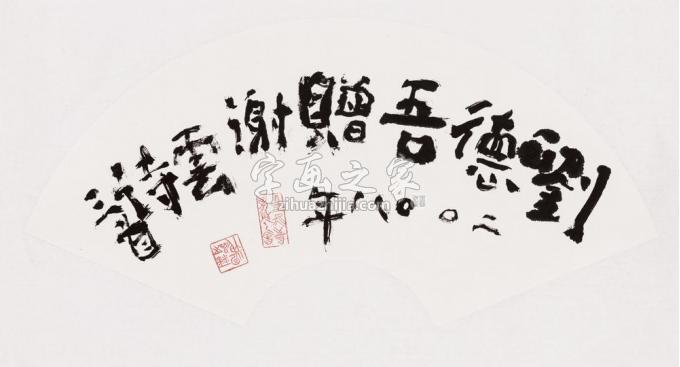 劉德吾贈謝雲
二〇〇八年
字画之家
zihuazhijia.com